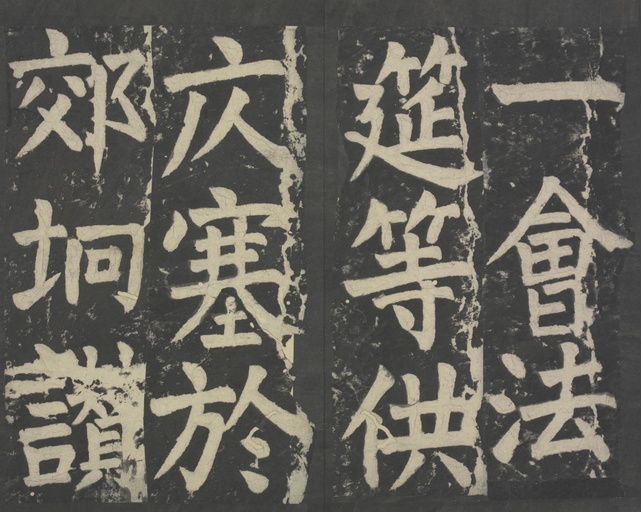 一會法
筵等供
仄塞於
郊坰讚